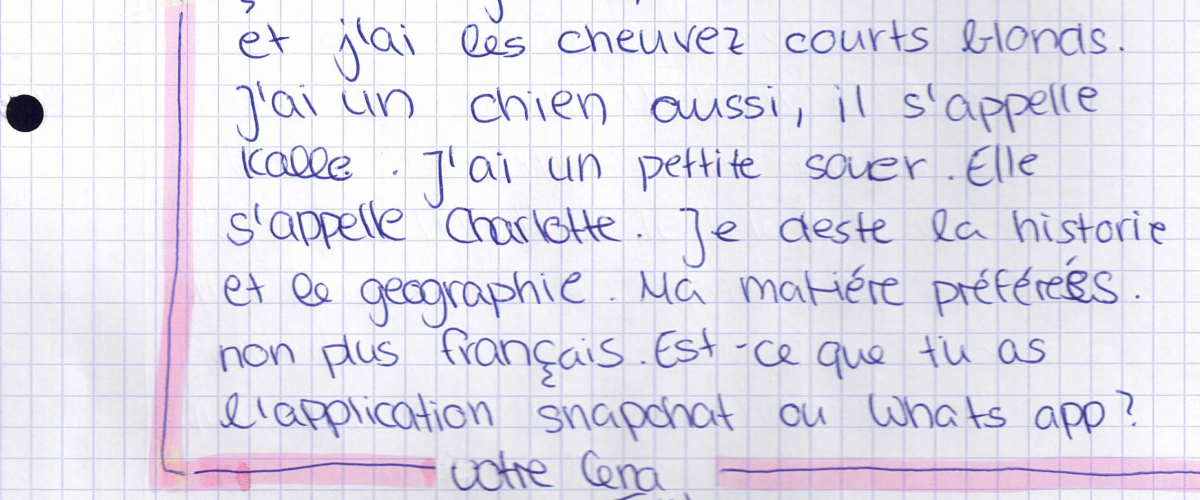 et j'ai les cheuvez courts blonds.
J'ai un chien aussi, il s'appelle
Kalle. J'ai un pettite souer. Elle
s'appelle Charlotte. Je deste la historie
et le geographie. Ma matiére préférées.
non plus français. Est-ce que tu as
l'application snapchat ou Whats app?
votre Cena